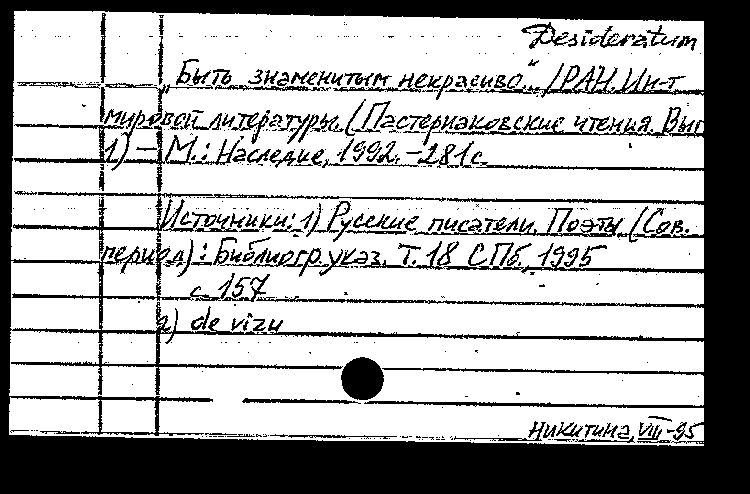 Desideratum
„Быть знаменитым некрасиво“. /РАН. Ин-т
мировой литературы. (Пастернаковские чтения. Вып
1) – М.: Наследие, 1992. – 281 с.
Источники: 1) Русские писатели. Поэты. (Сов.
период): Библиогр. указ. Т. 18 СПб, 1995
с. 157
2) de vizu
Никитина, VIII-95